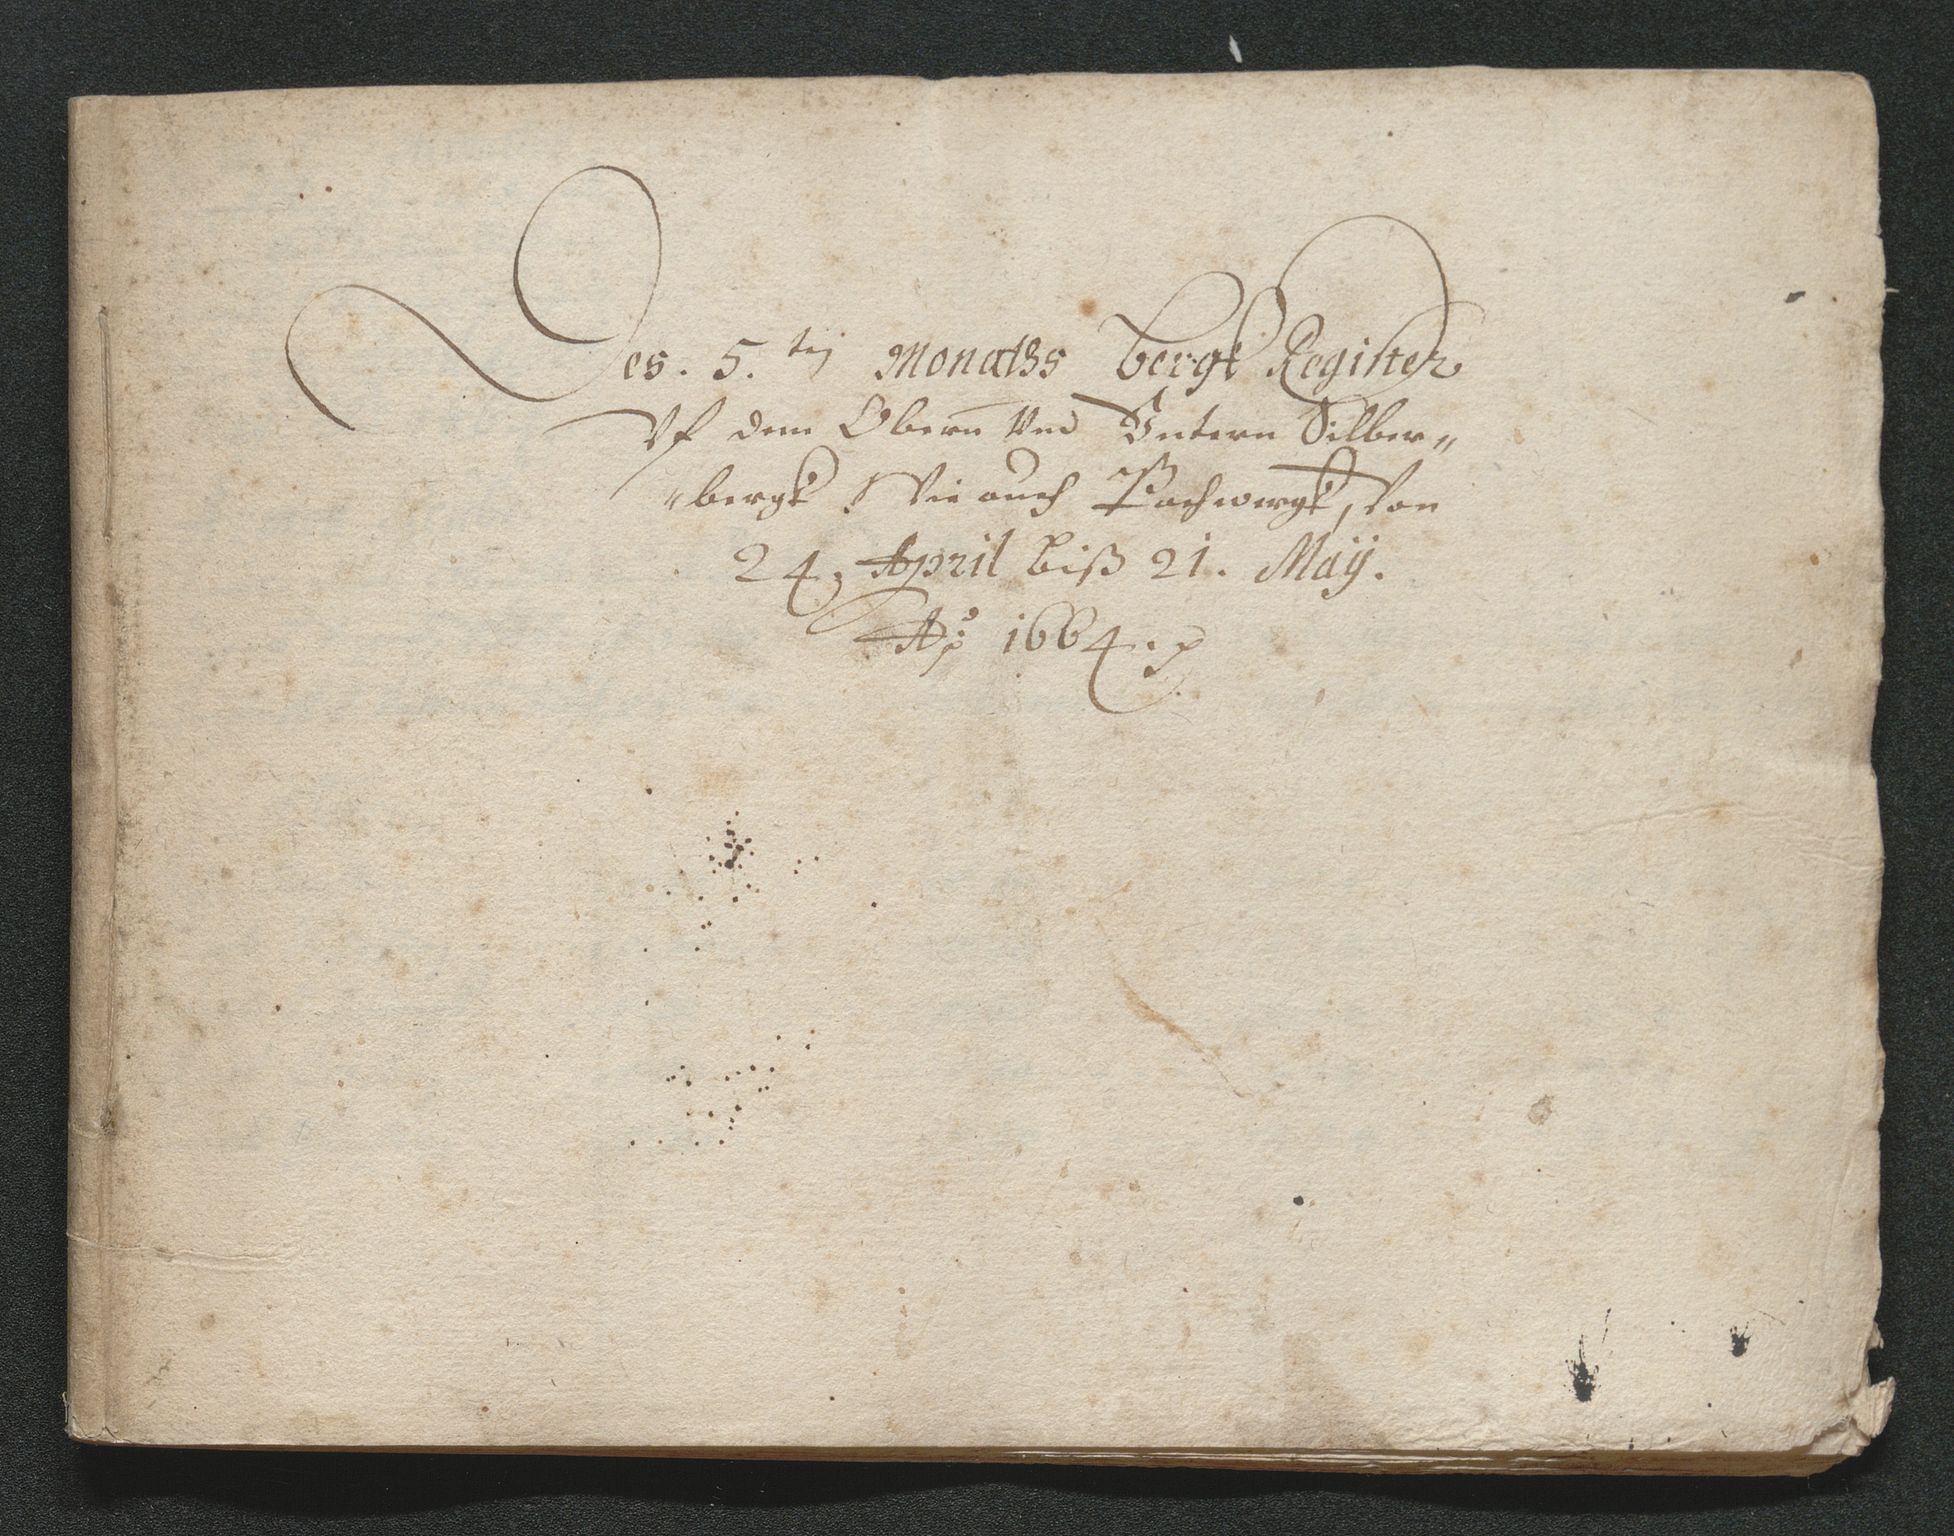 Des. 5. ten Monaths bergk Register
Vf dem Obern Vnd Vntern Silber-
bergk Wie auch Pochwergk, Von
24, April biß 21. Maÿ.
Ao 1664.